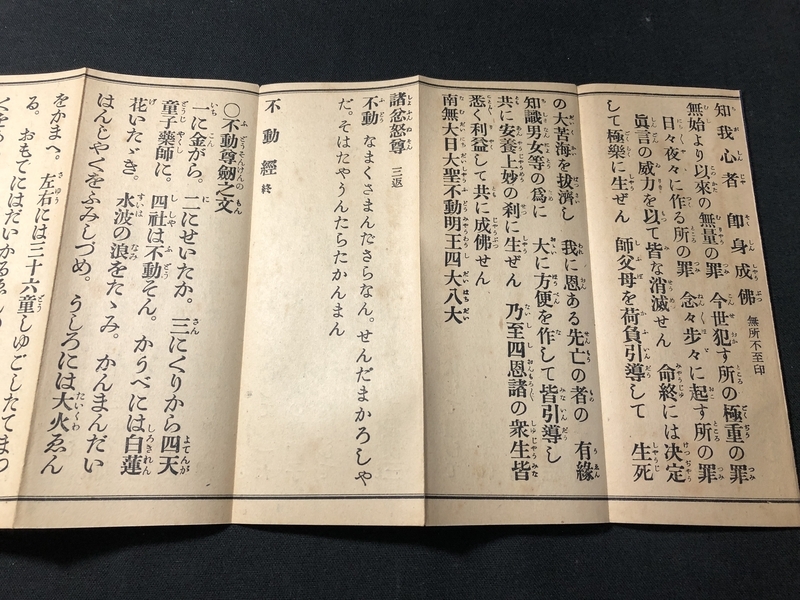 知我心者 即身成佛 無所不至印
無始より以來の無量の罪 今世犯す所の極重の罪
日々夜々に作る所の罪 念々歩々に起す所の罪
眞言の威力を以て皆な消滅せん 命終には決定
して極樂に生ぜん 師父母を荷負引導して 生死
の大苦海を拔濟し 我に恩ある先亡の者の 有緣
知識男女等の爲に 大に方便を作して皆引導し
共に安養上妙の刹に生ぜん 乃至四恩諸の衆生皆
悉く利益して共に成佛せん
南無大日大聖不動明王四大八大
諸忿怒尊 三返
不動 なまくさまんださらなん。せんだまかろしや
だ。そはたやうんたらたかんまん
不動經 終
〇不動尊劒之文
一に金がら。 二にせいたか。 三にくりから四天
童子藥師に。 四社は不動そん。かうべには白蓮
花いたゞき。 水波の浪をたゝみ。かんまんだい
はんじやくをふみしづめ。 うしろには大火ゑん
をかまへ。 左右には三十六童しゆごしたてまつ
る。 おもてにはだいかるゑんの